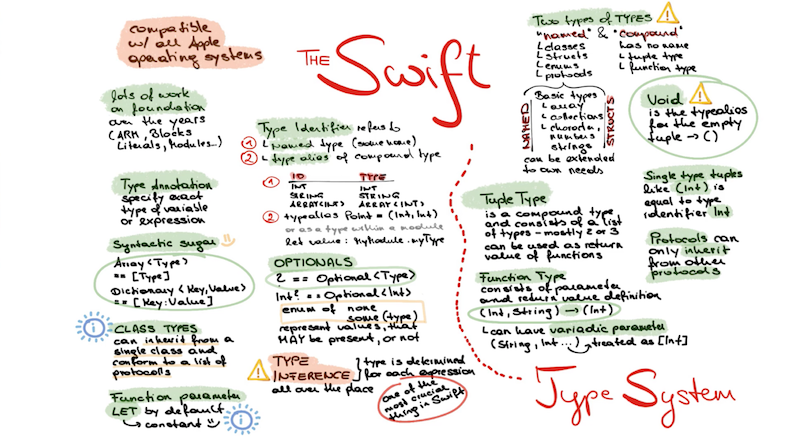 THE Swift
compatible
w/ all Apple
operating systems
lots of work
on foundation
over the years
(ARM, Blocks
Literals, Modules...)
Type Annotation
specify exact
type of variable
or expression
Syntactic sugar
Array <Type>
== [Type]
Dictionary <Key, Value>
== [Key: Value]
i
CLASS TYPES
can inherit from a
single class and
conform to a list of
protocols
Function parameter
LET by default
↳ constant
i
Type Identifier refers to
1 ↳ named type (some name)
2 ↳ type alias of compound type
1 ID TYPE
INT INT
STRING STRING
ARRAY(INT) ARRAY(INT)
2 typealias Point = (Int, Int)
or as a type within a module
let value: MyModule.myType
OPTIONALS
? == Optional <Type>
Int? == Optional <Int>
enum of none
some (type)
represent values, that
MAY be present, or not
! TYPE
INFERENCE
all over the place
type is determined
for each expression
one of the
most crucial
thing in Swift
Two types of TYPES !
"named" & "compound"
↳ classes
↳ structs
↳ enums
↳ protocols
has no name
↳ tuple type
↳ function type
NAMED
Basic types
↳ array
↳ collections
↳ character,
numbers
strings
STRUCTS
can be extended
to own needs
Void !
is the typealias
for the empty
tuple → ()
Single type tuples
like (Int) is
equal to type
identifier Int
Protocols can
only inherit
from other
protocols
Tuple Type
is a compound type
and consists of a list
of types - mostly 2 or 3
can be used as return
value of functions
Function Type
consists of parameter
and return value definition
(Int, String) → (Int)
↳ can have variadic parameter
(String, Int...) → treated as [Int]
Type System